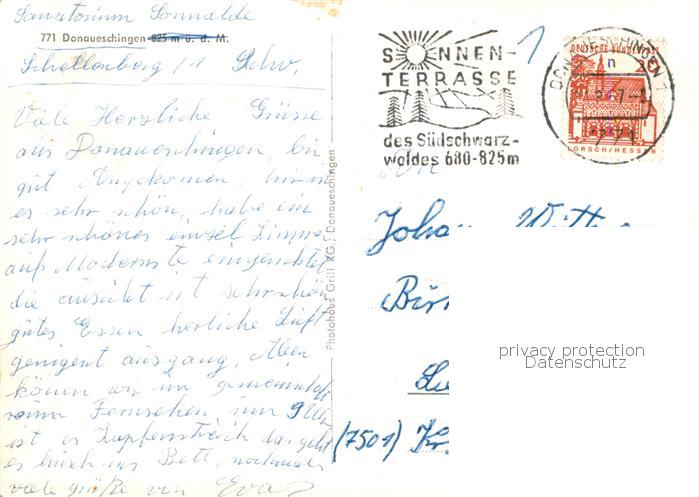 Sanatorium Sonnalde
771 Donaueschingen 825 m ü. d. M.
Schellenberg /1 Schw.
Viele Herzliche Grüsse
aus Donaueschingen, bin
gut Angekomen,
es sehr schön, habe ein
sehr schönes einzel Zimmer
auf Modernste eingerichtet
die aussicht ist sehr schön
gutes Essen herliche Luft
genigent ausgang, Aben
könen wir im gemeinschaft
raum Fernsehen um 9 Uhr
ist es Zapfenstreich das geht
es husch ins Bett, nochmals
viele grüße von Eva
Photohaus Grill KG., Donaueschingen
SONNEN-
TERRASSE
des Südschwarz-
waldes 680-825m
DONAUESCHINGEN 1
n
771
DEUTSCHE BUNDESPOST
20
LORSCH/HESSEN
Joha
(7501)
privacy protection
Datenschutz